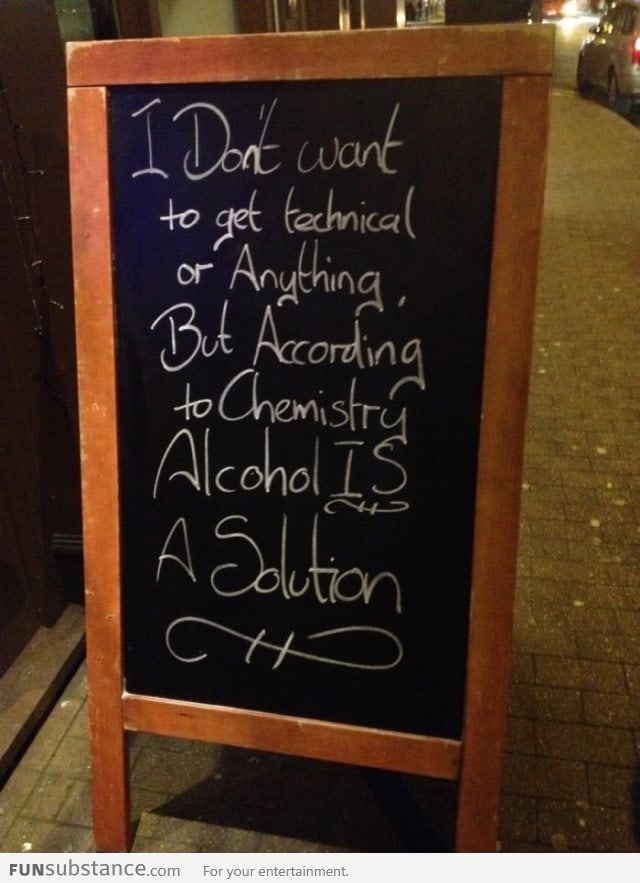 I Don't want
to get technical
or Anything,
But According
to Chemistry
Alcohol IS
A Solution
FUNsubstance.com For your entertainment.